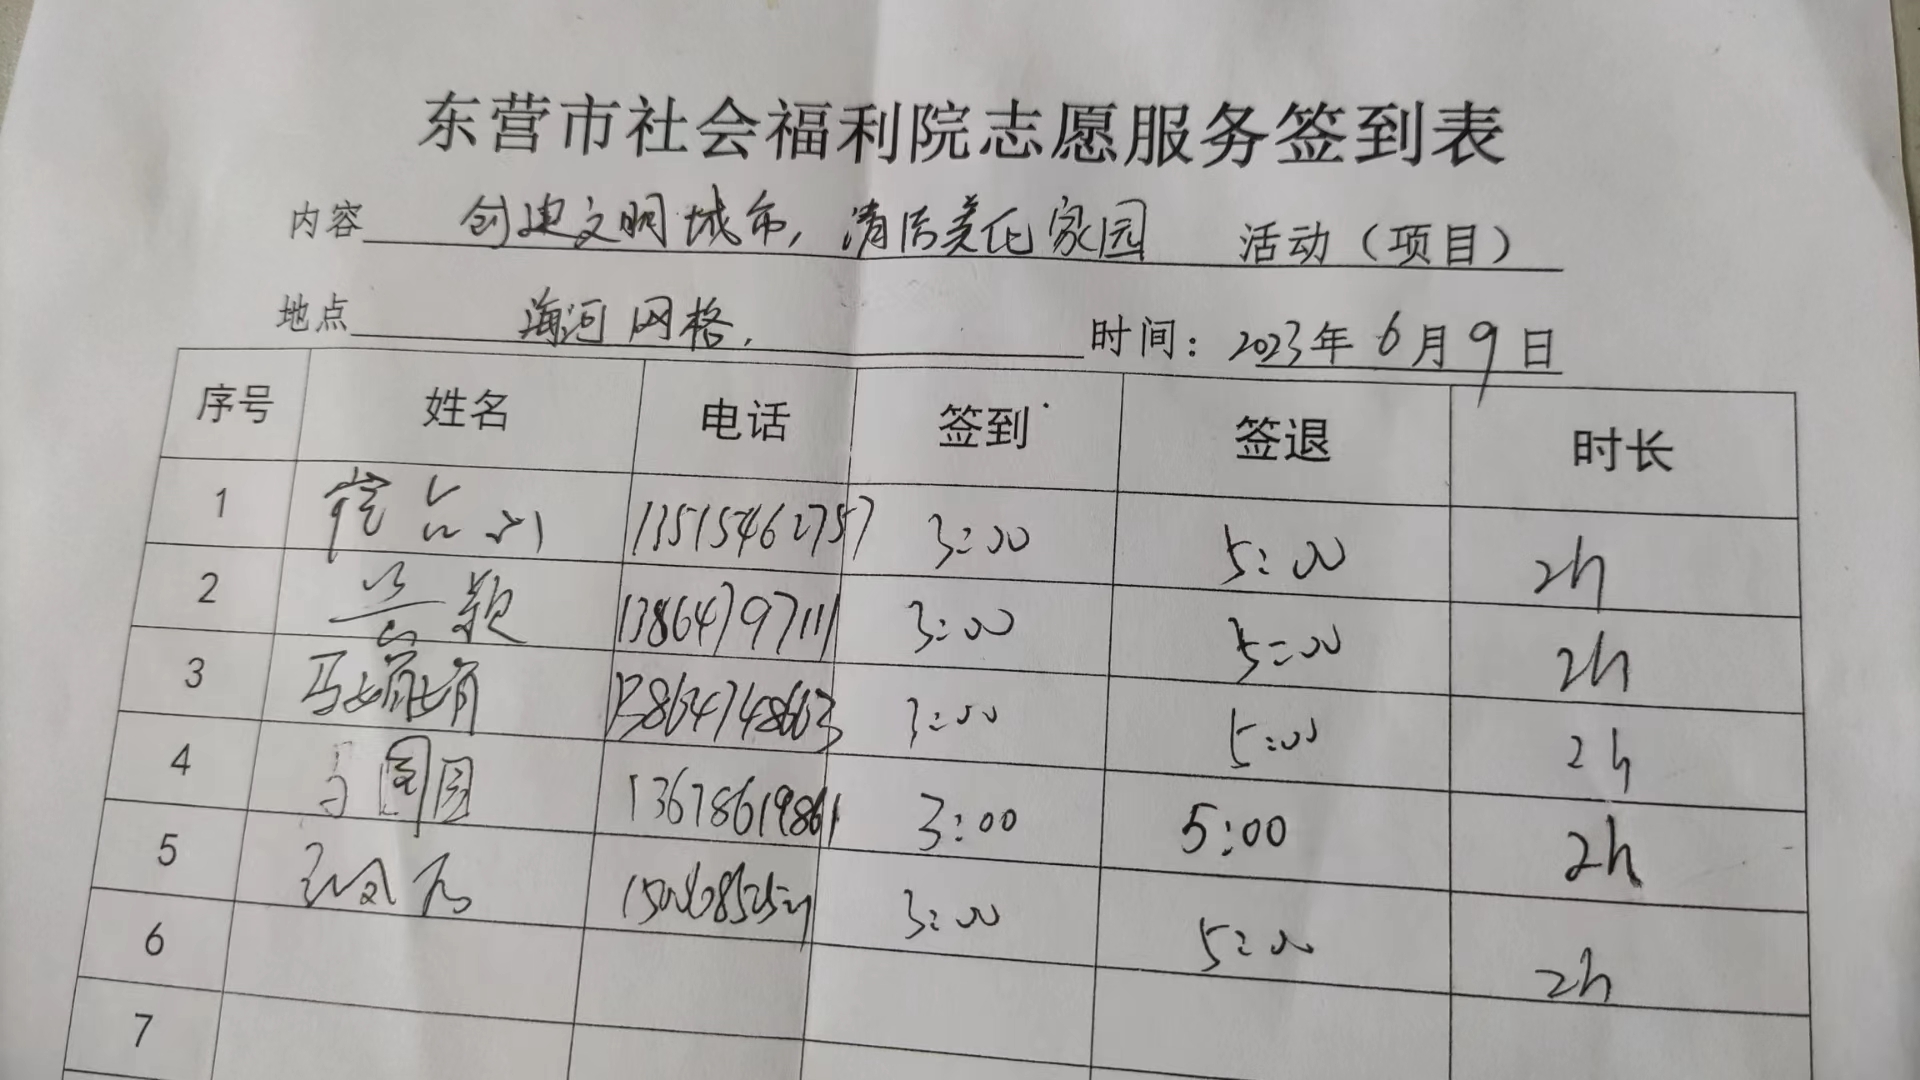 东营市社会福利院志愿服务签到表
内容 创建文明城市，清洁美化家园 活动（项目）
地点 海河网格. 时间：2023年6月9日
序号 姓名 电话 签到 签退 时长
1 13515462757 3:00 5:00 2h
2 13864797111 3:00 5:00 2h
3 13864748663 3:00 5:00 2h
4 圆圆 13678619861 3:00 5:00 2h
5 3:00 5:00 2h
6
7